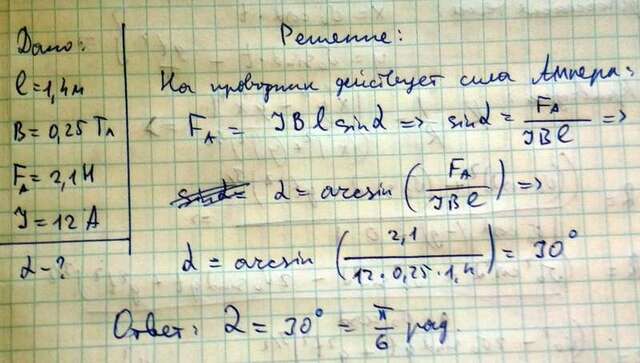 Дано:
l = 1,4 м
B = 0,25 Тл
F_A = 2,1 Н
J = 12 А
α - ?
Решение:
На проводник действует сила Ампера:
F_A = JBl sinα => sinα = F_A / JBl =>
sinα = α = arcsin (F_A / JBl) =>
α = arcsin (2,1 / 12·0,25·1,4) = 30°
Ответ: α = 30° = π/6 рад.